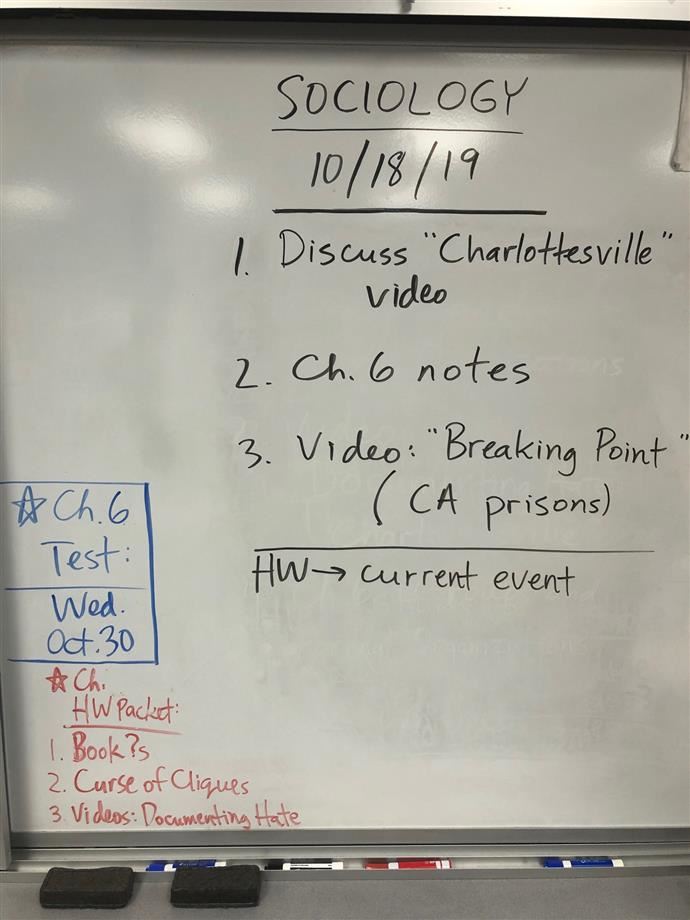 SOCIOLOGY
10/18/19
1. Discuss "Charlottesville"
video
2. Ch. 6 notes
3. Video: "Breaking Point"
(CA prisons)
HW → current event
☆ Ch. 6
Test:
Wed.
Oct. 30
☆ Ch.
HW Packet:
1. Book ?s
2. Curse of Cliques
3. Videos: Documenting Hate